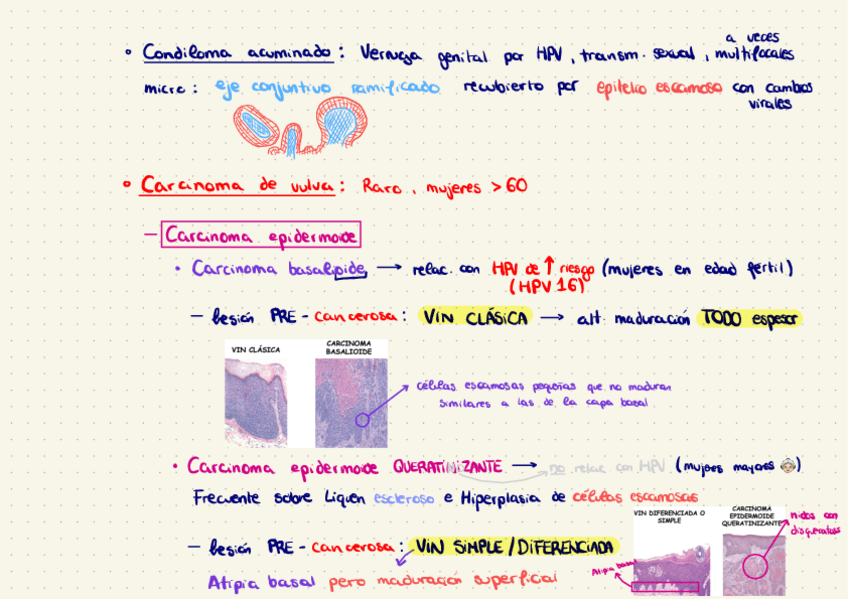 a veces
• Condiloma acuminado : Verruga genital por HPV, transm. sexual, multifocales
micro : eje conjuntivo ramificado recubierto por epitelio escamoso con cambios
virales
• Carcinoma de vulva : Raro, mujeres > 60
- Carcinoma epidermoide
• Carcinoma basalioide → relac. con HPV de ↑ riesgo (mujeres en edad fértil)
(HPV 16)
- Lesión PRE - cancerosa : VIN CLÁSICA → alt. maduración TODO espesor
VIN CLÁSICA
CARCINOMA
BASALIOIDE
células escamosas pequeñas que no maduran
similares a las de la capa basal
• Carcinoma epidermoide QUERATINIZANTE → no relac con HPV (mujeres mayores)
Frecuente sobre Liquen escleroso e Hiperplasia de células escamosas
VIN DIFERENCIADA O
SIMPLE
CARCINOMA
EPIDERMOIDE
QUERATINIZANTE
nidos con
disqueratosis
- Lesión PRE - cancerosa : VIN SIMPLE / DIFERENCIADA
Atipia basal
Atipia basal pero maduración superficial